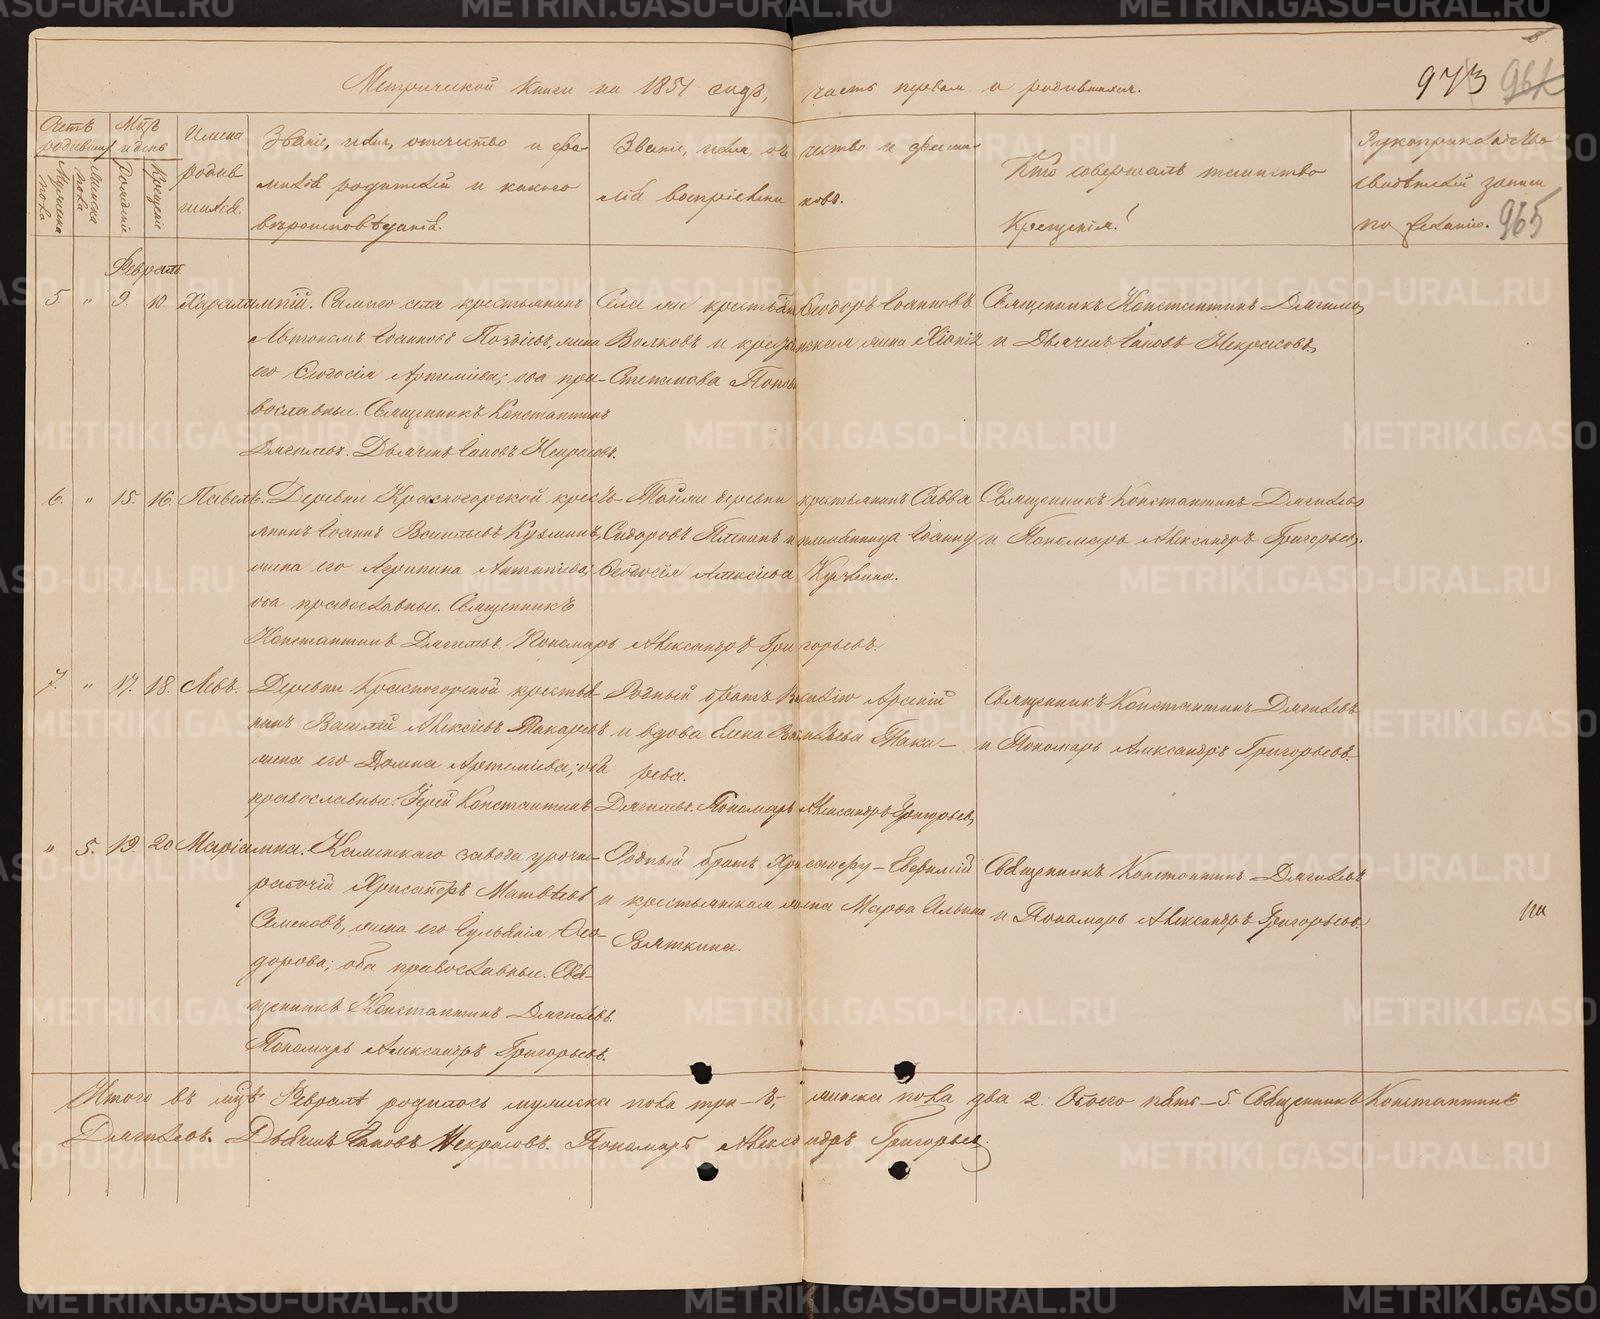 Метрической книги на 1851 годъ, часть первая о родившихся.
973
965
Счетъ родившихся
Мужеска пола
Женска пола
Мѣс. и день
Рожденія
Крещенія
Имена родившихся.
Званіе, имя, отчество и фамилія родителей и какого вѣроисповѣданія.
Званіе, имя, отчество и фамилія воспріемниковъ.
Кто совершалъ таинство Крещенія!
Рукоприкладство свидѣтелей записи по желанію.
Февраль
5. " 9. 10. Харалампій. Самаго села крестьянинъ
Автономъ Іоанновъ Поздѣевъ, жена
его Ѳеодосія Артеміева; оба пра-
вославные. Священникъ Константинъ
Дягилевъ. Дьячекъ Іаковъ Некрасовъ.
Села же крестьян. Ѳеодоръ Іоанновъ
Волковъ и крестьянская жена Хіонія
Степанова Попова
Священникъ Константинъ Дягилевъ
и Дьячекъ Іаковъ Некрасовъ.
6. " 15. 16. Павелъ. Деревни Красногорской кресть-
янинъ Іоаннъ Васильевъ Кузьминъ,
жена его Агрипина Антипіева;
оба православные. Священникъ
Константинъ Дягилевъ. Пономарь Александръ Григорьевъ.
Тойже деревни крестьянинъ Савва
Сидоровъ и племянница Іоанну
Ѳеодосія Алексіева
Священникъ Константинъ Дягилевъ
и Пономарь Александръ Григорьевъ.
7. " 17. 18. Левъ. Деревни Красногорской крестья-
нинъ Василій Алексіевъ Макаровъ
жена его Домна Артеміева; оба
православные. Іерей Константинъ Дягилевъ. Пономарь Александръ Григорьевъ.
Родный братъ Василію Арсеній
и вдова Елена Васильева Мака-
рова.
Священникъ Константинъ Дягилевъ
и Пономарь Александръ Григорьевъ.
" 5. 19. 20 Маріамна. Каменскаго завода урочно-
рабочій Хрисанфъ Матвѣевъ
Семеновъ, жена его Гульфія Ѳео-
дорова; оба православные. Свя-
щенникъ Константинъ Дягилевъ.
Пономарь Александръ Григорьевъ.
Родный братъ Хрисанфу - Евфимій
и крестьянская жена Марѳа Ильина
Вяткина.
Священникъ Константинъ Дягилевъ
и Пономарь Александръ Григорьевъ.
на
Итого въ мцѣ Февралѣ родилось мужеска пола три - 3, женска пола два 2. Обоего пять - 5. Священникъ Константинъ
Дягилевъ. Дьячекъ Іаковъ Некрасовъ. Пономарь Александръ Григорьевъ.
METRIKI.GASO-URAL.RU